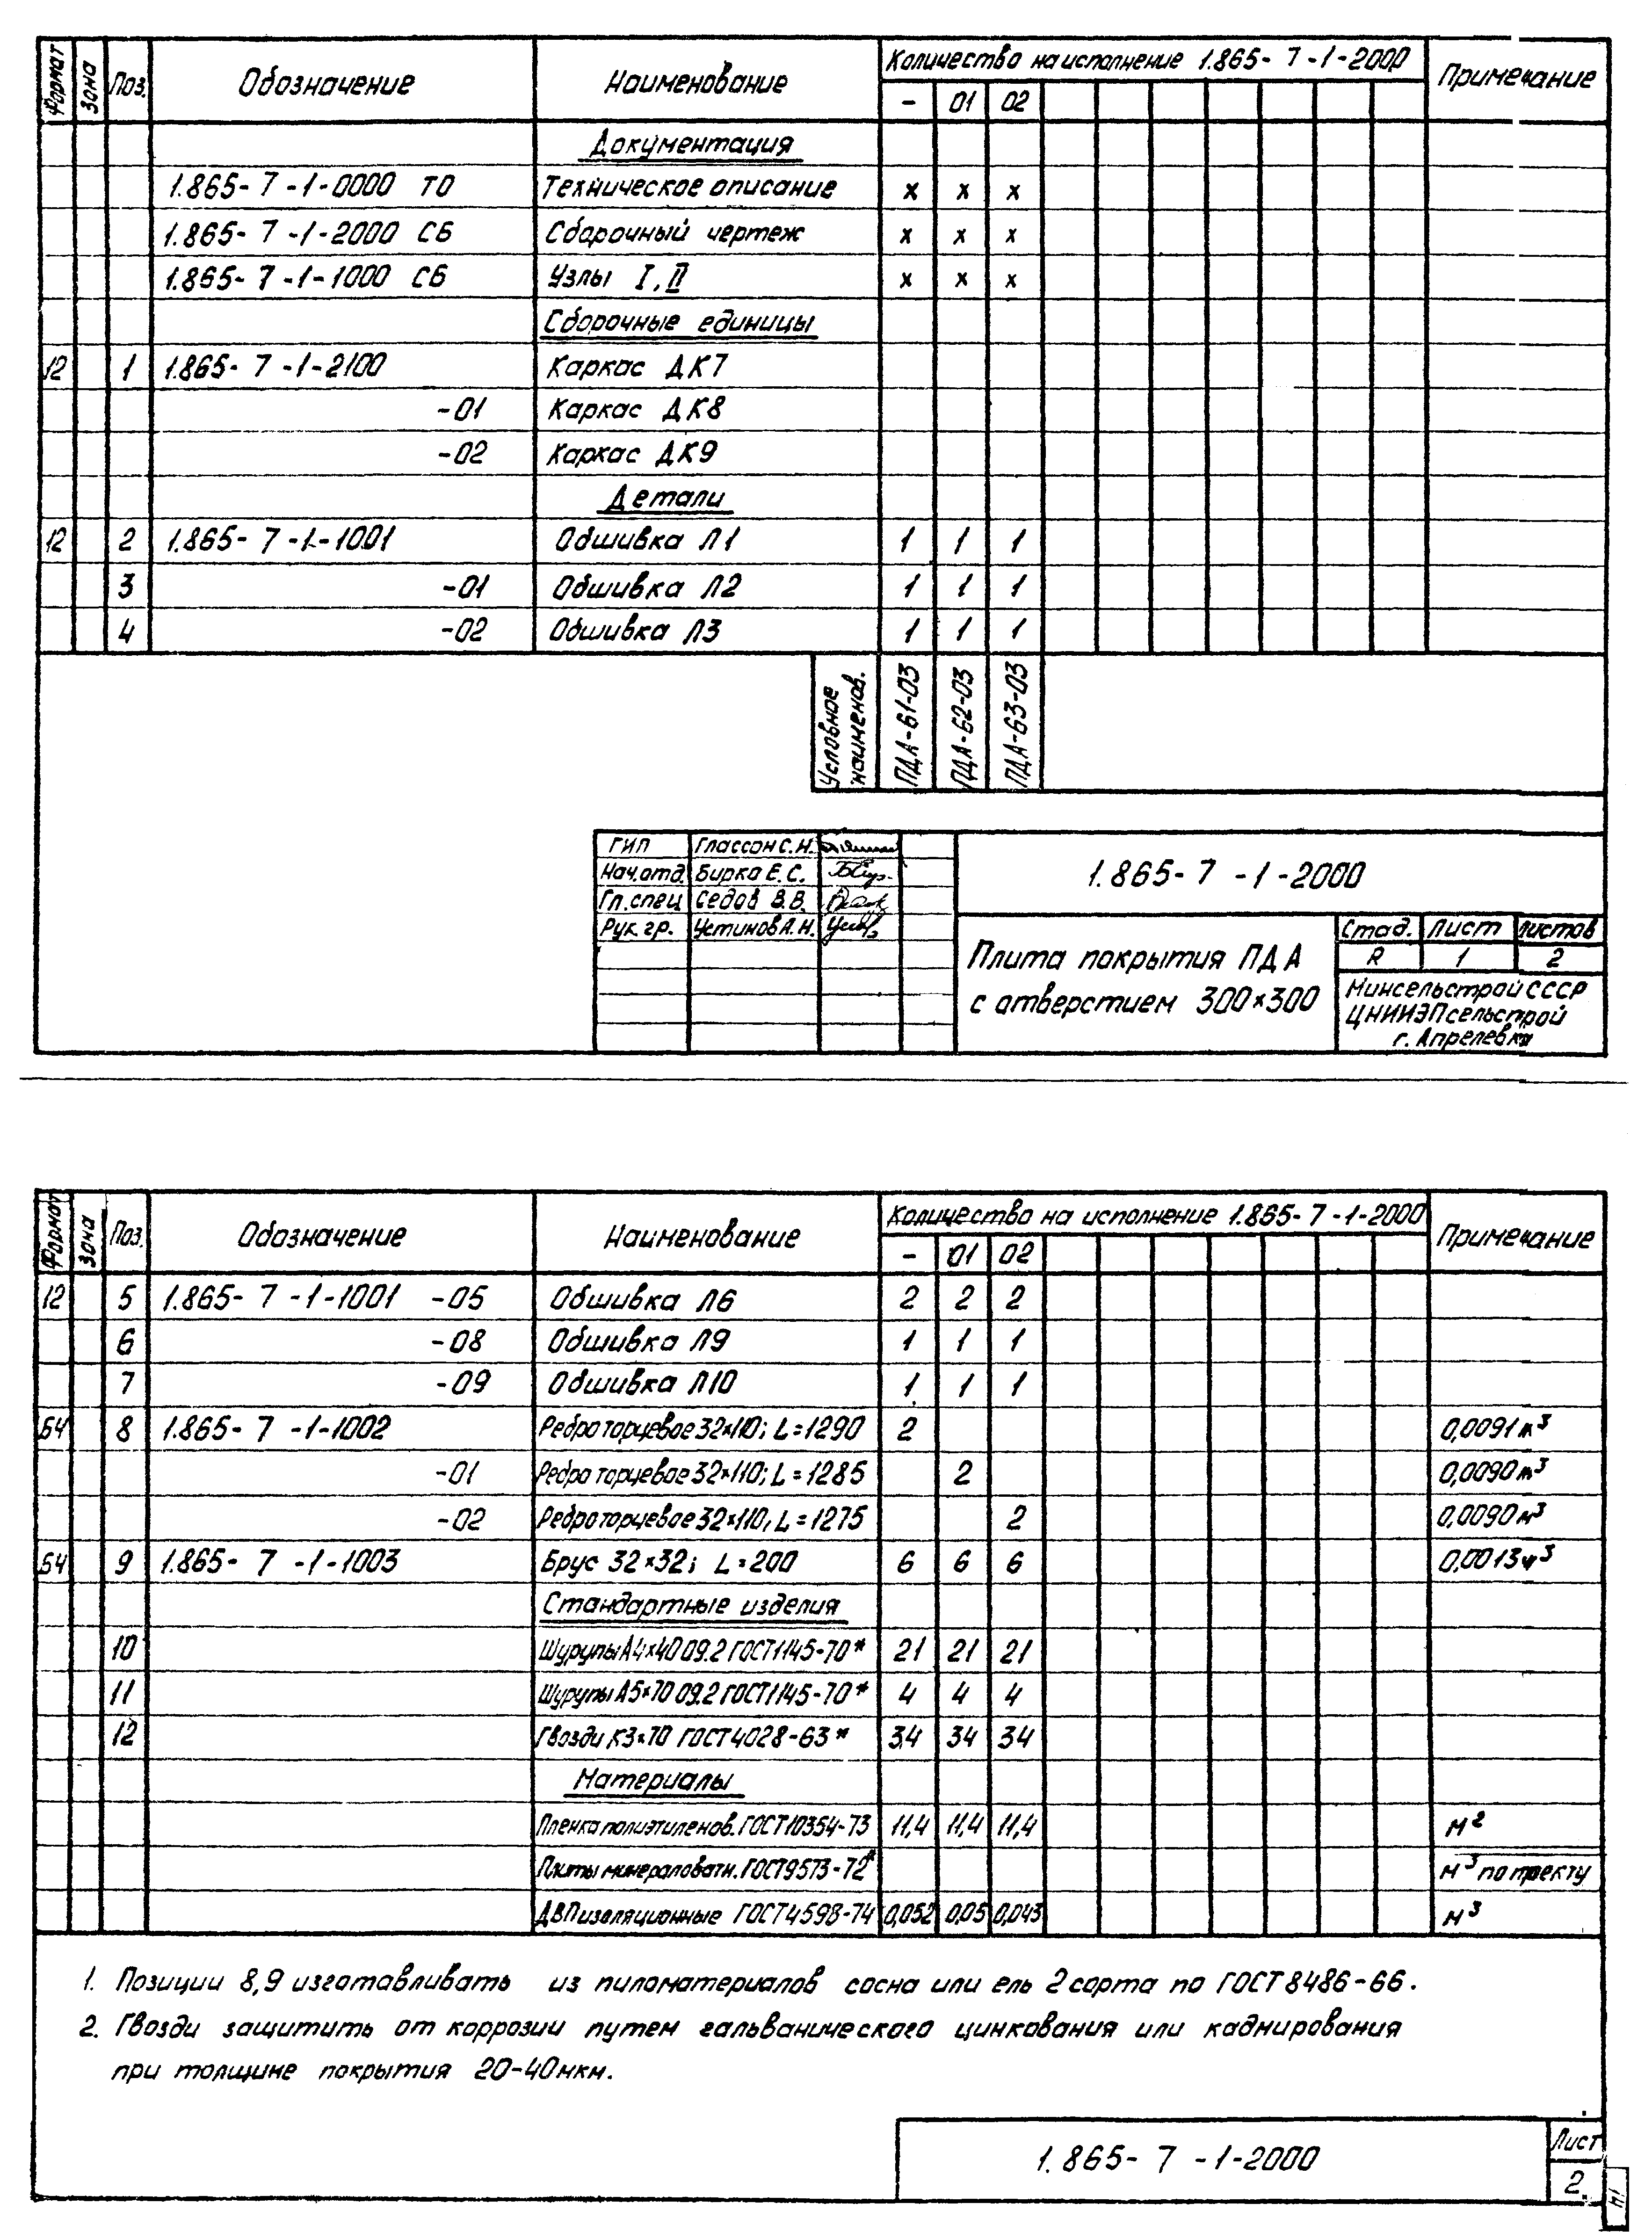 Формат Зона Поз. Обозначение Наименование Количество на исполнение 1.865-7-1-2000 Примечание
- 01 02
Документация
1.865-7-1-0000 ТО Техническое описание х х х
1.865-7-1-2000 СБ Сборочный чертеж х х х
1.865-7-1-1000 СБ Узлы I, II х х х
Сборочные единицы
12 1 1.865-7-1-2100 Каркас ДК7
-01 Каркас ДК8
-02 Каркас ДК9
Детали
12 2 1.865-7-1-1001 Обшивка Л1 1 1 1
3 -01 Обшивка Л2 1 1 1
4 -02 Обшивка Л3 1 1 1
Условное наименов. ПДА-61-03 ПДА-62-03 ПДА-63-03
ГИП Глассон С.Н.
Нач.отд. Бирко Е.С.
Гл.спец Седов В.В.
Рук.гр. Устинов А.Н.
1.865-7-1-2000
Плита покрытия ПДА
с отверстием 300×300
Стад. Лист Листов
R 1 2
Минсельстрой СССР
ЦНИИЭПсельстрой
г. Апрелевка
Формат Зона Поз. Обозначение Наименование Количество на исполнение 1.865-7-1-2000 Примечание
- 01 02
12 5 1.865-7-1-1001 -05 Обшивка Л6 2 2 2
6 -08 Обшивка Л9 1 1 1
7 -09 Обшивка Л10 1 1 1
Б4 8 1.865-7-1-1002 Ребро торцевое 32×110; L=1290 2 0,0091 м³
-01 Ребро торцевое 32×110; L=1285 2 0,0090 м³
-02 Ребро торцевое 32×110, L=1275 2 0,0090 м³
Б4 9 1.865-7-1-1003 Брус 32×32; L=200 6 6 6 0,0013 м³
Стандартные изделия
10 Шурупы А4×40 09.2 ГОСТ 1145-70* 21 21 21
11 Шурупы А5×70 09.2 ГОСТ 1145-70* 4 4 4
12 Гвозди К3×70 ГОСТ 4028-63* 34 34 34
Материалы
Пленка полиэтиленов. ГОСТ 10354-73 11,4 11,4 11,4 м²
Плиты минераловатн. ГОСТ 9573-72* м³ по проекту
ДВП изоляционные ГОСТ 4598-74 0,052 0,05 0,043 м³
1. Позиции 8,9 изготавливать из пиломатериалов сосна или ель 2 сорта по ГОСТ 8486-66.
2. Гвозди защитить от коррозии путем гальванического цинкования или кадмирования
при толщине покрытия 20-40мкм.
1.865-7-1-2000
Лист
2